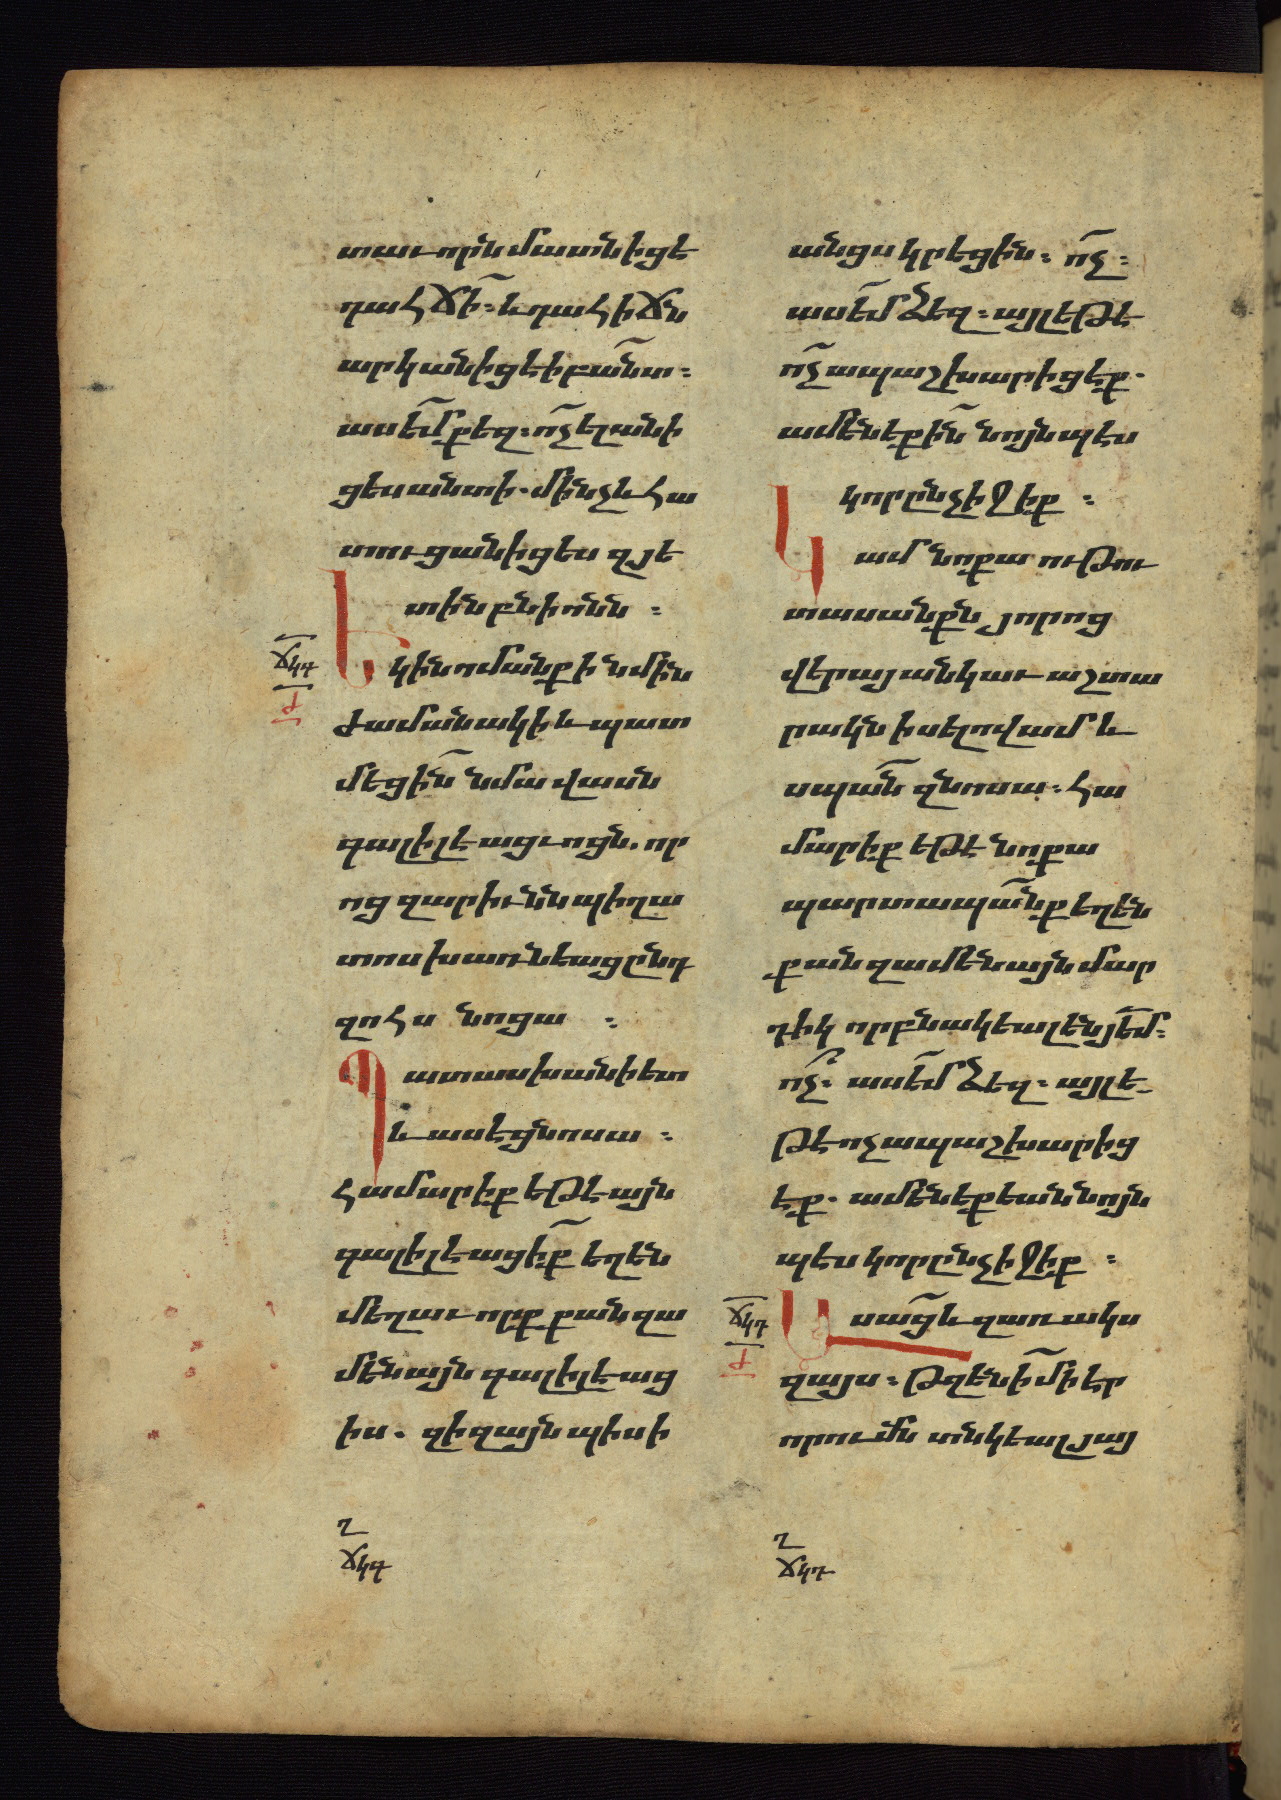 տաւորն մատնիցէ
դահՃի՜. և դահիՃն
արկանիցէ ի բա՜նտ.
ասե՜մ քեզ. ո՜չ ելանի
ցես անտի. մինչև հա
տուցանիցես զյե
տին բնիոնն :
Եկին ոմանք ի նմին
ժամանակի և պատ
մեցի՜ն նմա վասն
գալիլէացւոցն. որ
ոց զարիւնն պիղա
տոս խառնեաց ընդ
զոհս նոցա :
Պատասխանի ետ
և ասէ ցնոսա :
Համարիք եթէ այն
գալիլէացի՜ք եղեն
մեղաւորք քան զա
մենայն գալիլէաց
իս. զի զայնպիսի
ՃԿԳ
Ժ
Ղ
ՃԿԳ
անցս կրեցին : ո՜չ :
ասե՜մ ձեզ : այլ եթէ
ո՜չ ապաշխարիցեք.
ամենեքի՜ն նոյնպէս
կորընչիջիք :
Կամ նոքա ութու
տասանքն յորոց
վերայ անկաւ աշտա
րակն ի սելովամ և
սպա՜ն զնոսա. հա
մարիք եթէ նոքա
պարտապա՜նք եղեն
քան զամենայն մար
դիկ որ բնակեալ էն յե՜մ.
ո՜չ. ասե՜մ ձեզ. այլ ե
թէ ոչ ապաշխարից
եք. ամենեքեան նոյն
պես կորընչիջիք :
Ասա՜ց և զառակս
զայս : Թզենի՜ մի էր
ուրումն տնկեալ յայ
ՃԿԴ
Ժ
Ղ
ՃԿԴ